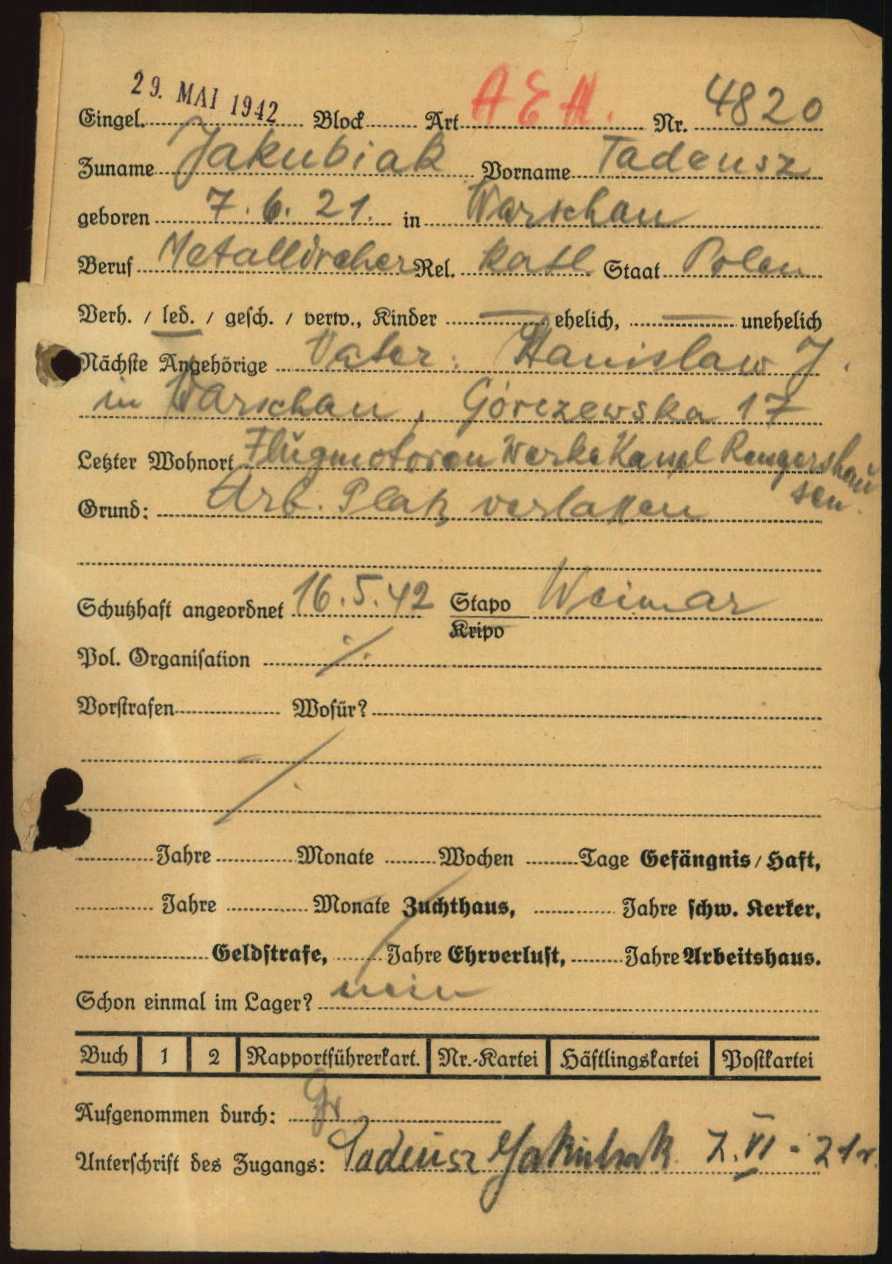 29. MAI 1942
Eingel. Block Art A E H. Nr. 4820
Zuname Jakubiak Vorname Tadeusz
geboren 7.6.21. in Warschau
Beruf Metalldreher Rel. kath Staat Polen
Verh. / led. / gesch. / verw., Kinder — ehelich, — unehelich
Nächste Angehörige Vater: Stanislaw J.
in Warschau, Górczewska 17
Letzter Wohnort Flugmotoren Werke Kassel Rengershausen
Grund: Arb. Platz verlassen
Schutzhaft angeordnet 16.5.42 Stapo Weimar
Kripo
Pol. Organisation ·/.
Vorstrafen Wofür?
/.
Jahre Monate Wochen Tage Gefängnis/Haft,
Jahre Monate Zuchthaus, Jahre schw. Kerker,
Geldstrafe, Jahre Ehrverlust, Jahre Arbeitshaus.
Schon einmal im Lager? nein
Buch 1 2 Rapportführerkart. Nr.-Kartei Häftlingskartei Postkartei
Aufgenommen durch:
Unterschrift des Zugangs: Tadeusz Jakubiak 7.VI-21r.